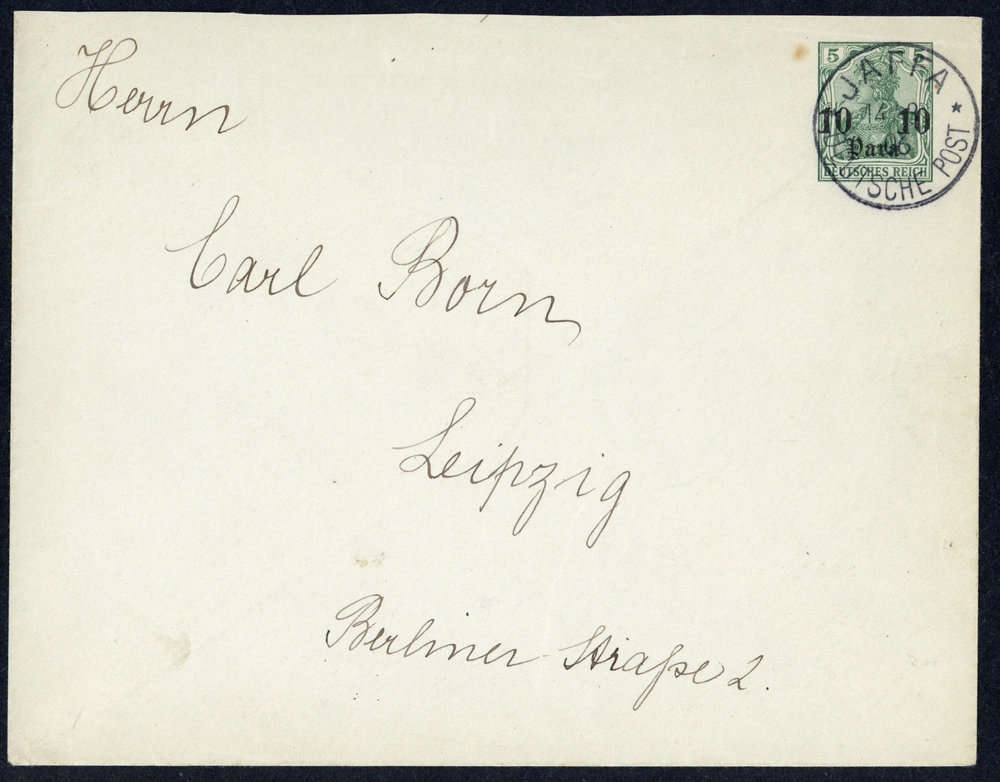 Herrn
Carl Born
Leipzig
Berliner Straße 2.
5 5
10 10
Para
DEUTSCHES REICH
JAFFA
14
DEUTSCHE POST